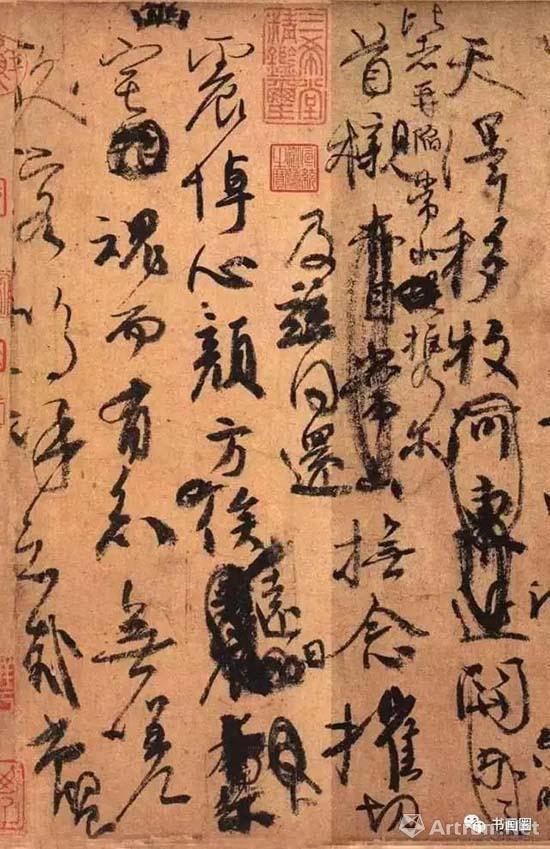 天澤移牧河東近關
比者再陷常山携尔
首櫬亦自常山撫念摧切
及兹同還
震悼心顏方俟遠日
宅魂而有知無嗟
久客嗚呼哀哉尚饗
三希堂精鑑璽
书画圈
Artron.Net